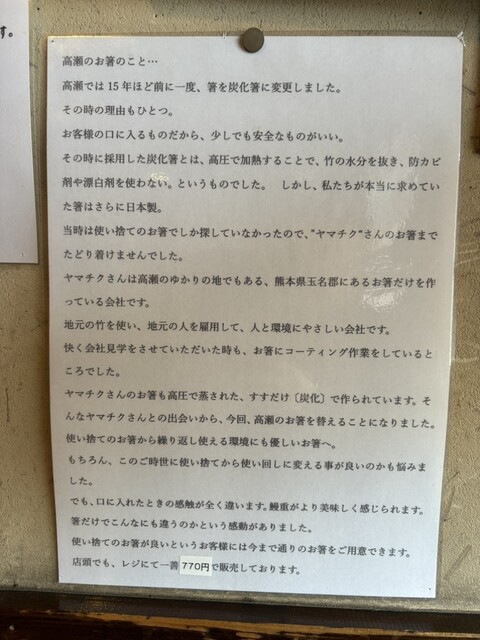 す。
高瀬のお箸のこと…
高瀬では15年ほど前に一度、箸を炭化箸に変更しました。
その時の理由もひとつ。
お客様の口に入るものだから、少しでも安全なものがいい。
その時に採用した炭化箸とは、高圧で加熱することで、竹の水分を抜き、防カビ
剤や漂白剤を使わない。というものでした。 しかし、私たちが本当に求めてい
た箸はさらに日本製。
当時は使い捨てのお箸でしか探していなかったので、"ヤマチク"さんのお箸まで
たどり着けませんでした。
ヤマチクさんは高瀬のゆかりの地でもある、熊本県玉名郡にあるお箸だけを作
っている会社です。
地元の竹を使い、地元の人を雇用して、人と環境にやさしい会社です。
快く会社見学をさせていただいた時も、お箸にコーティング作業をしていると
ころでした。
ヤマチクさんのお箸も高圧で蒸された、すすだけ〔炭化〕で作られています。そ
んなヤマチクさんとの出会いから、今回、高瀬のお箸を替えることになりました。
使い捨てのお箸から繰り返し使える環境にも優しいお箸へ。
もちろん、このご時世に使い捨てから使い回しに変える事が良いのかも悩みま
した。
でも、口に入れたときの感触が全く違います。鰻重がより美味しく感じられます。
箸だけでこんなにも違うのかという感動がありました。
使い捨てのお箸が良いというお客様には今まで通りのお箸をご用意できます。
店頭でも、レジにて一善770円で販売しております。